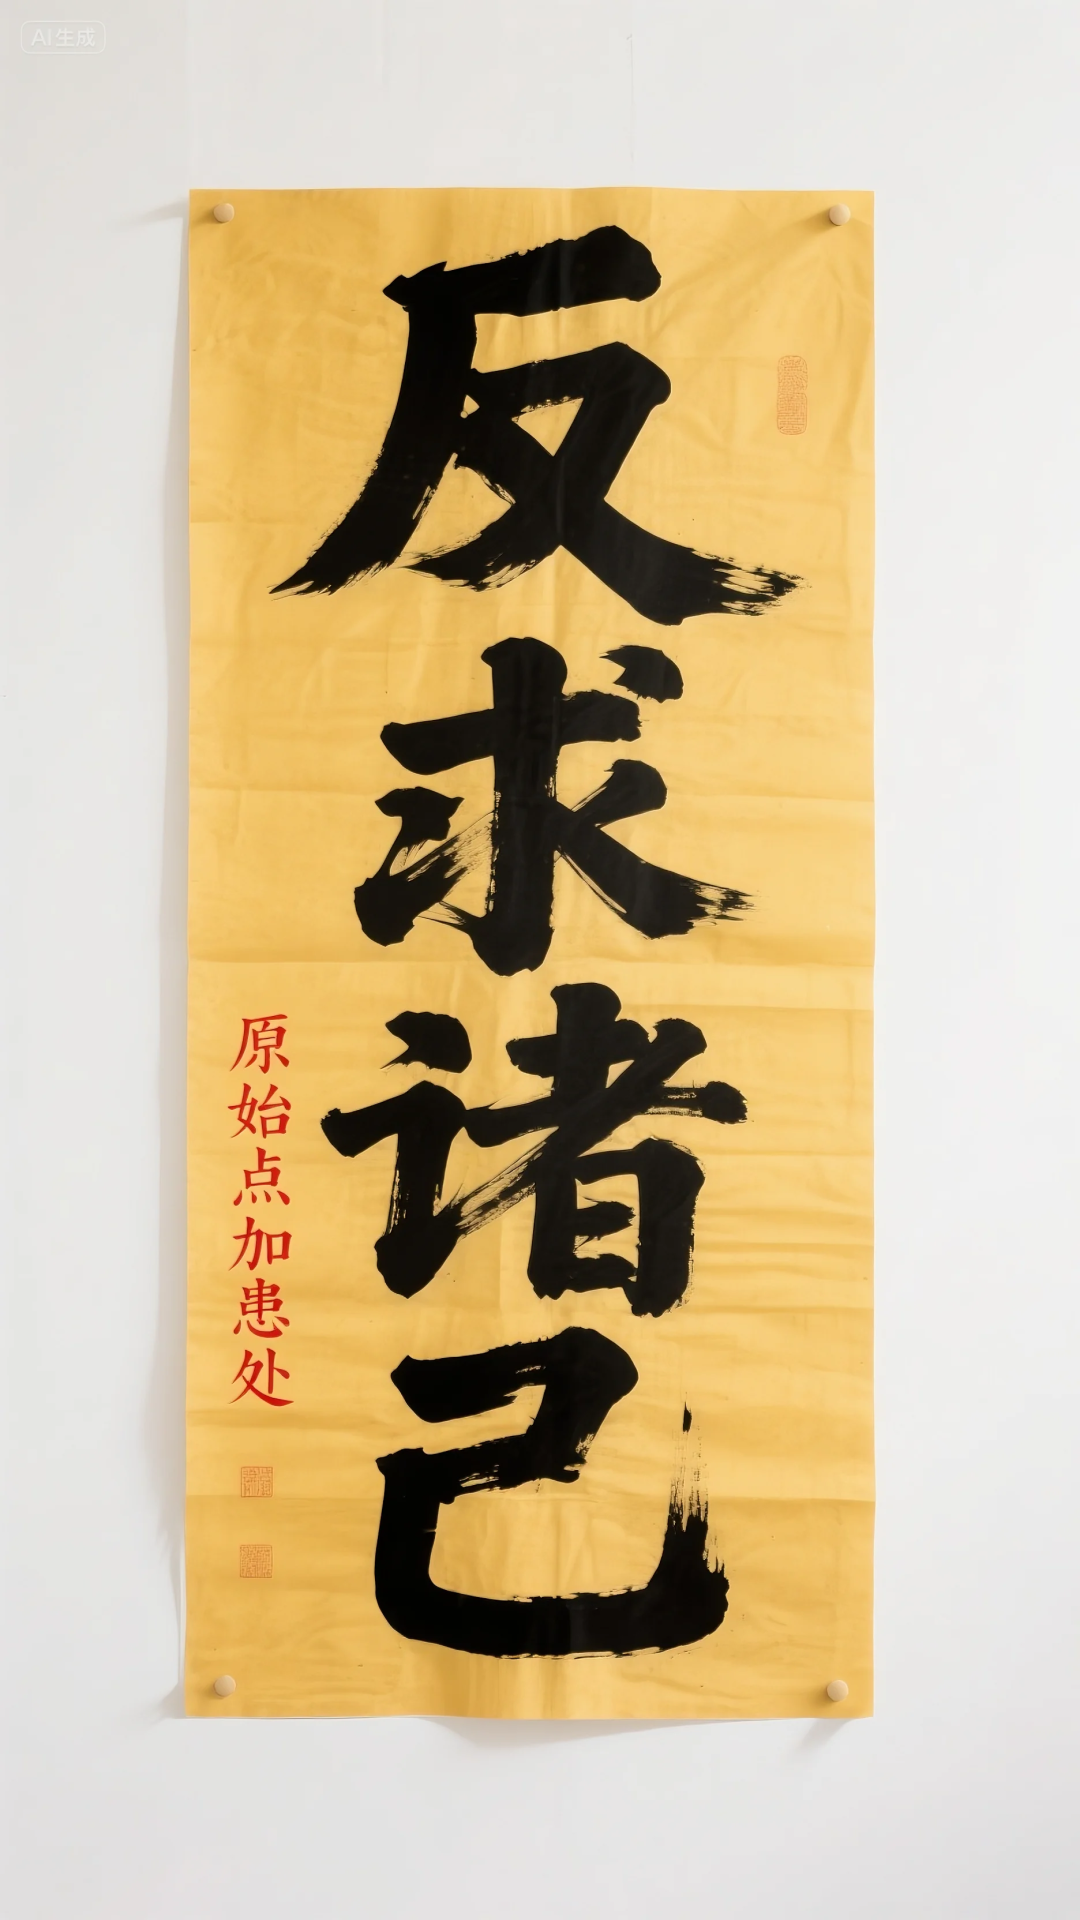 AI生成
反求诸己
原始点加患处